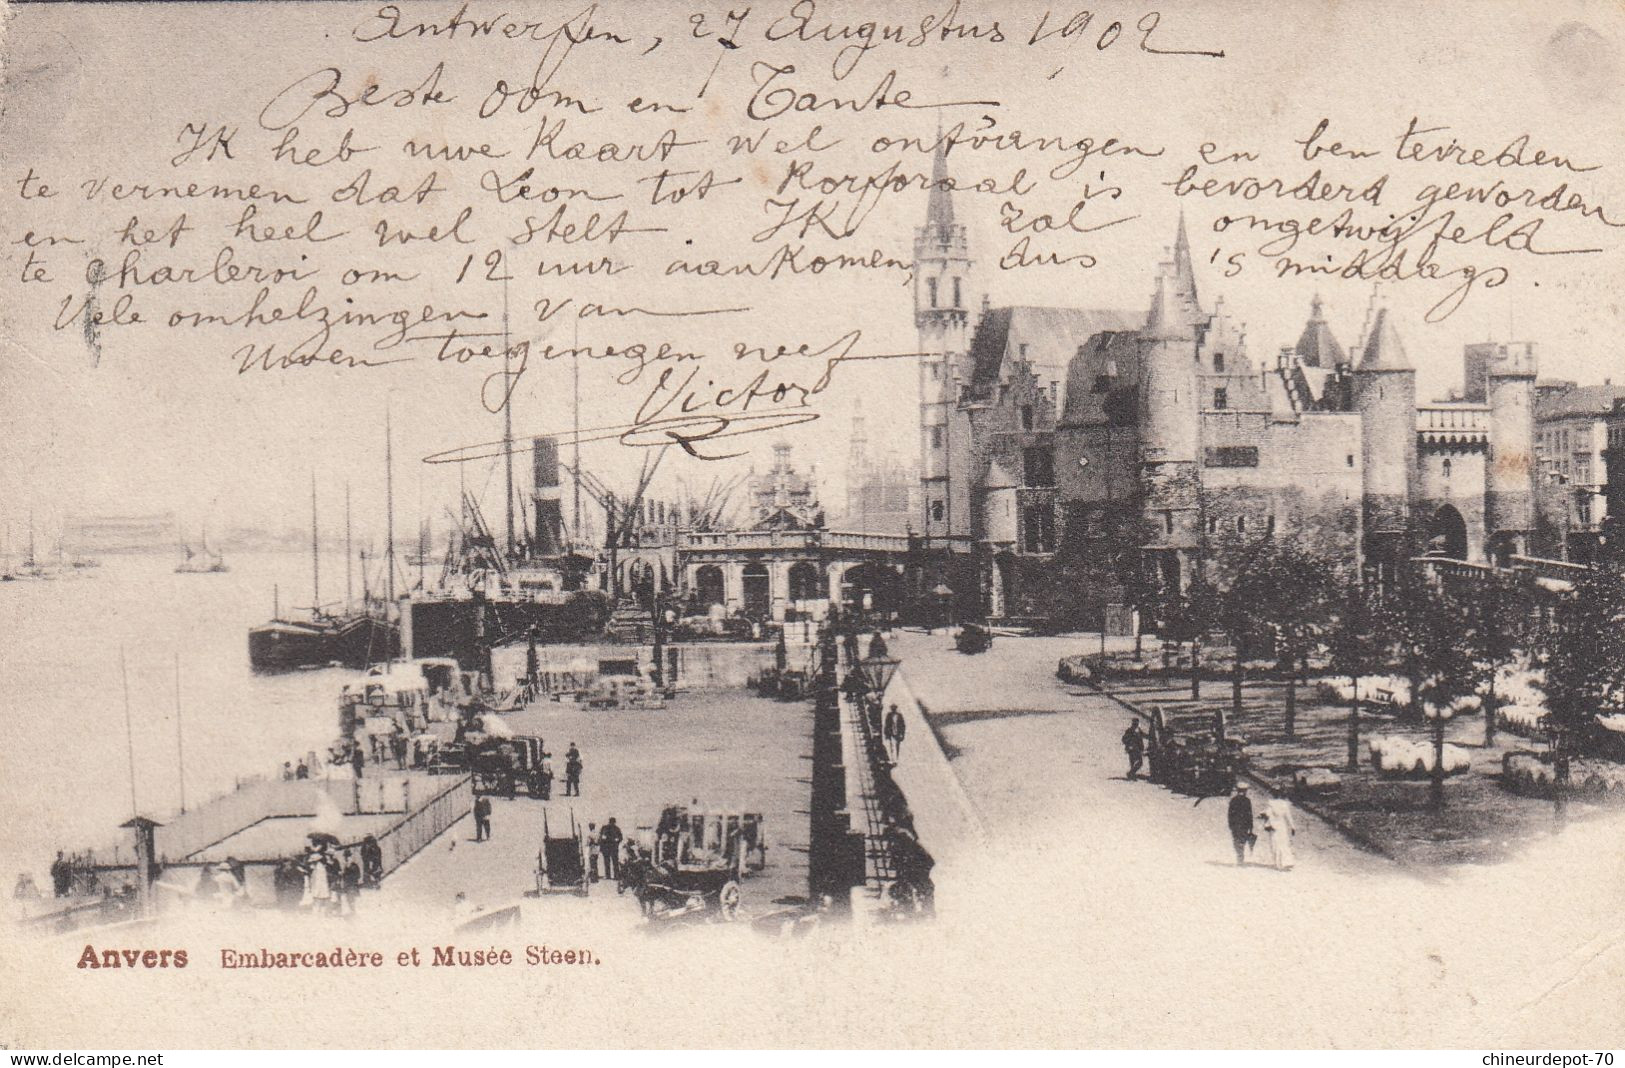 Antwerpen, 27 Augustus 1902
Beste Oom en Tante
Ik heb uwe Kaart wel ontvangen en ben tevreden
te vernemen dat Leon tot Korporaal is bevorderd geworden
en het heel wel stelt. Ik zal ongetwijfeld
te Charleroi om 12 uur aankomen, dus 's middags.
Vele omhelzingen van
Uwen toegenegen neef
Victor
Anvers Embarcadère et Musée Steen.
delcampe.net
chineurdepot-70